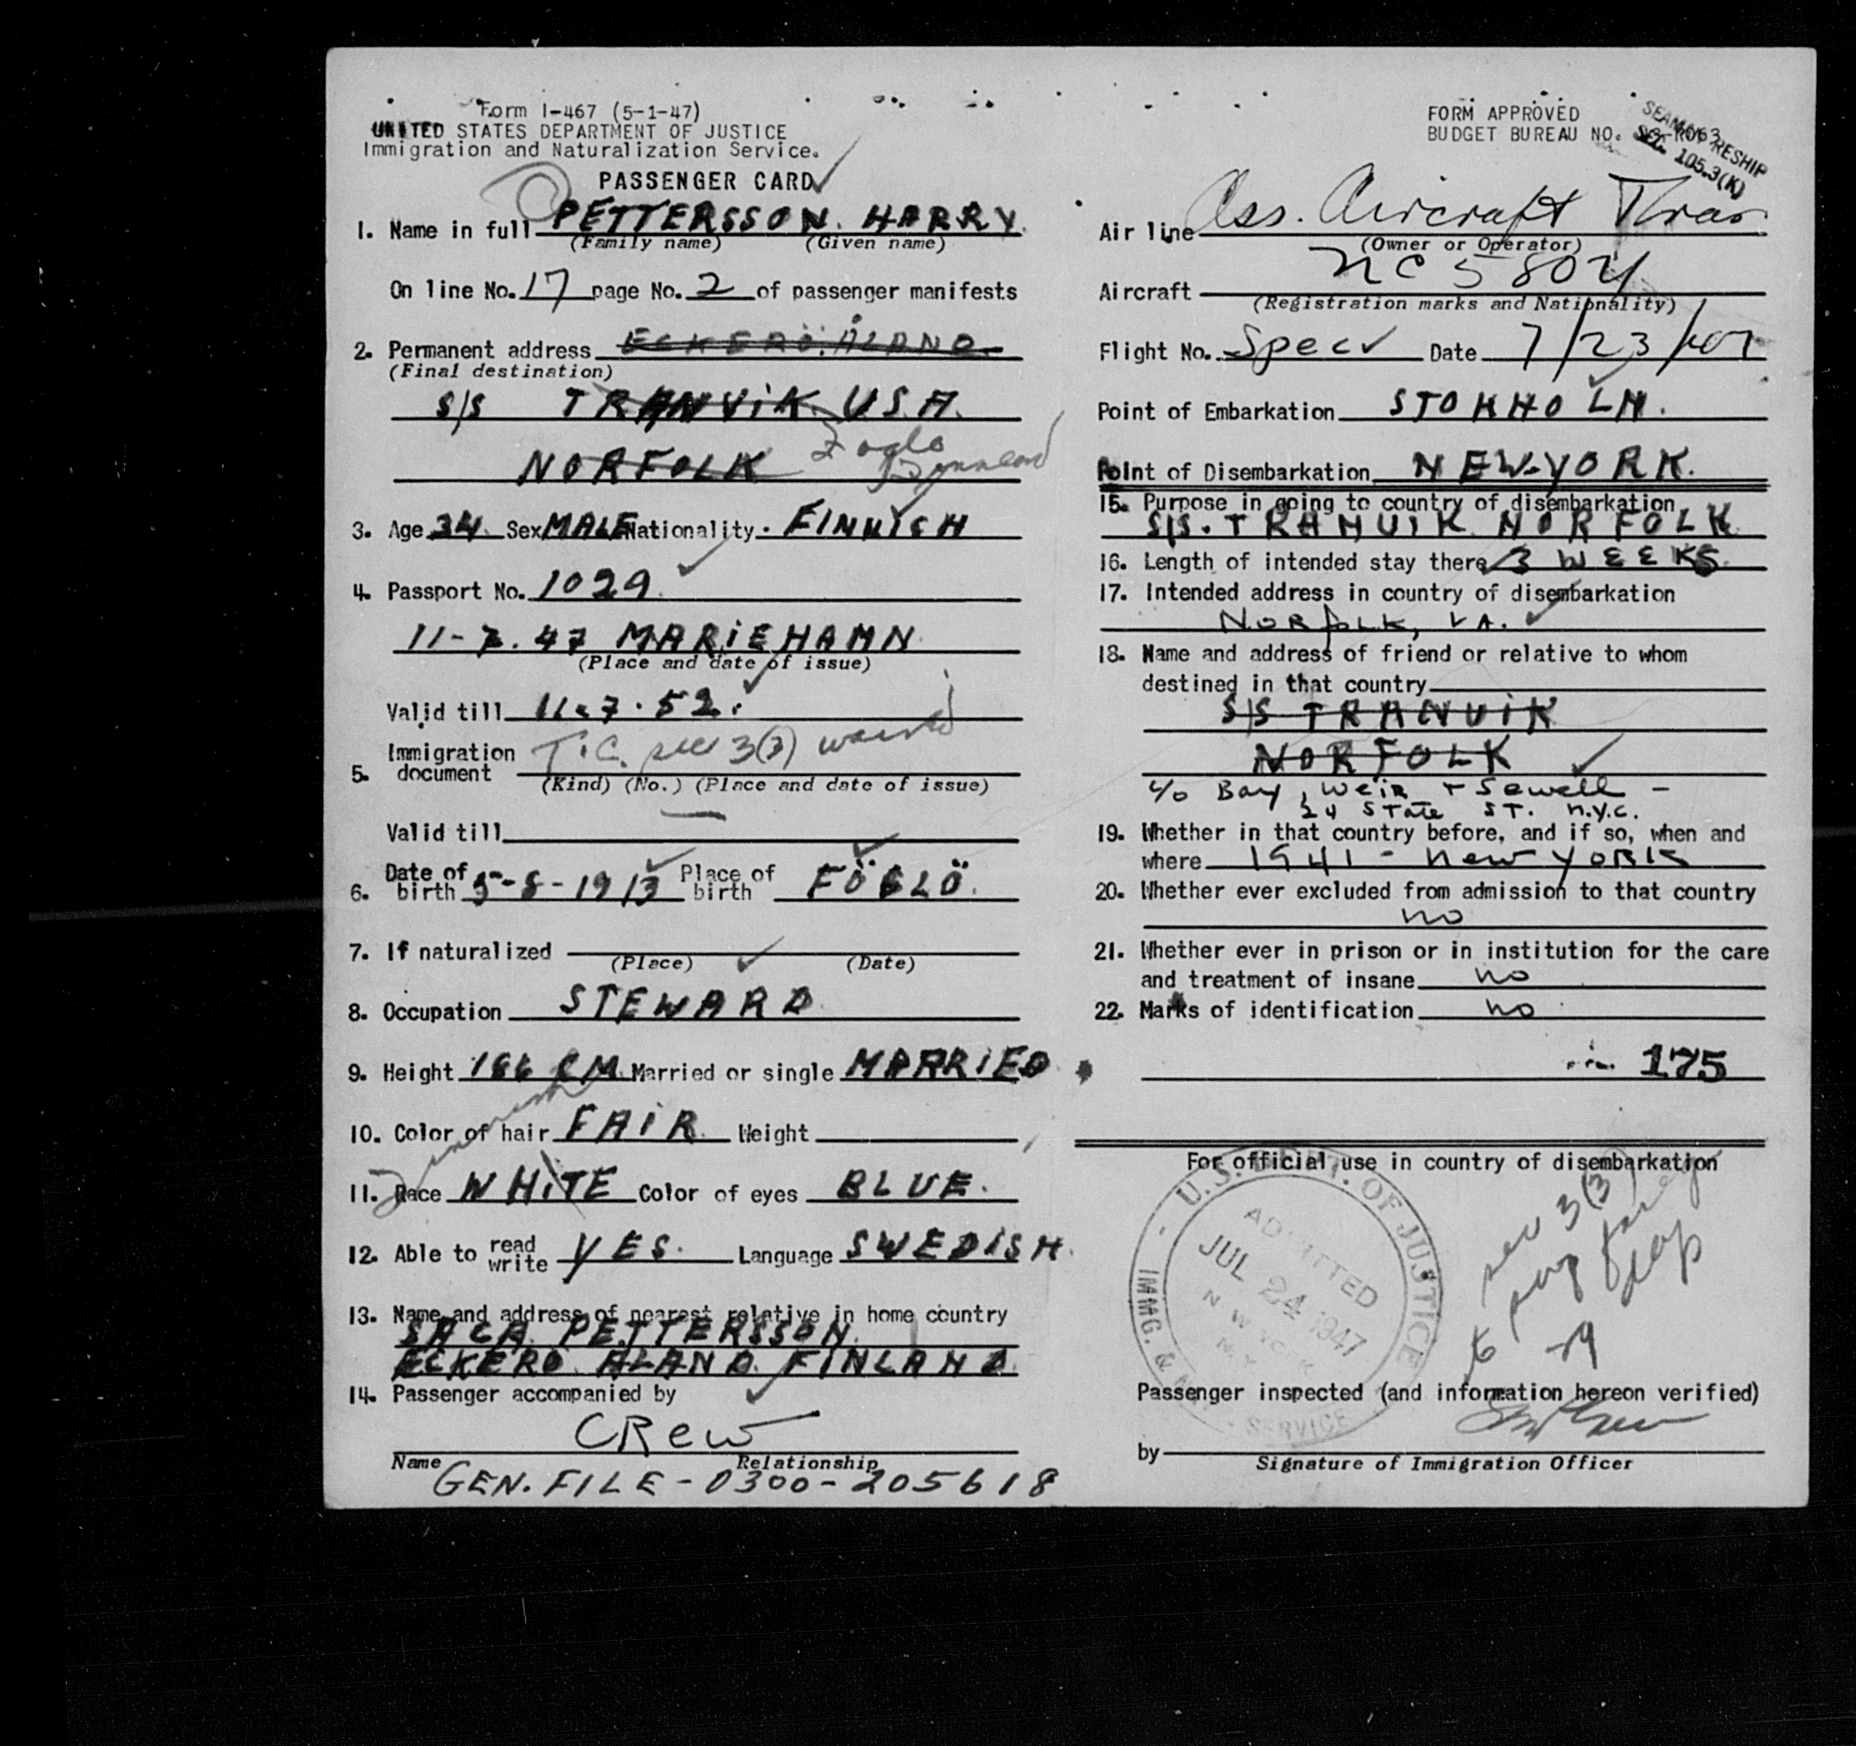 Form I-467 (5-1-47)
UNITED STATES DEPARTMENT OF JUSTICE
Immigration and Naturalization Service.
PASSENGER CARD
1. Name in full PETTERSSON. HARRY
(Family name) (Given name)
On line No. 17 page No. 2 of passenger manifests
2. Permanent address ECKERÖ. ÅLAND.
(Final destination)
S/S TRANVIK. U.S.A.
NORFOLK
3. Age 34 Sex MALE Nationality. FINNISH
4. Passport No. 1029
11-7.47 MARIEHAMN
(Place and date of issue)
Valid till 11.7.52.
Immigration
5. document T.C. sec 3(3) waived
(Kind) (No.) (Place and date of issue)
Valid till —
6. Date of birth 5-8-1913 Place of birth FÖGLÖ.
7. If naturalized
(Place) (Date)
8. Occupation STEWARD
9. Height 166 CM. Married or single MARRIED
10. Color of hair FAIR. Weight
11. Race WHITE Color of eyes BLUE.
12. Able to read write YES. Language SWEDISH.
13. Name and address of nearest relative in home country
SAGA PETTERSSON.
ECKERO ALAND. FINLAND.
14. Passenger accompanied by
CRew
Name Relationship
GEN. FILE - 0300-205618
FORM APPROVED
BUDGET BUREAU NO.
SEC. 105.3(K)
Air line Ass. Aircraft Tran
(Owner or Operator)
Aircraft NC 5804
(Registration marks and Nationality)
Flight No. Spec Date 7/23/47
Point of Embarkation STOKHOLM.
Point of Disembarkation NEW-YORK.
15. Purpose in going to country of disembarkation
S/S. TRANVIK NORFOLK
16. Length of intended stay there 3 WEEKS
17. Intended address in country of disembarkation
NORfOLK, VA.
18. Name and address of friend or relative to whom
destined in that country
S/S TRANVIK
NORFOLK
c/o Bay, Weir + Sewell -
24 State ST. N.Y.C.
19. Whether in that country before, and if so, when and
where 1941 - New YORK
20. Whether ever excluded from admission to that country
no
21. Whether ever in prison or in institution for the care
and treatment of insane no
22. Marks of identification no
175
For official use in country of disembarkation
U.S. DEPT. OF JUSTICE
ADMITTED
JUL 24 1947
NEW YORK
N.Y.
IMMG. & SERVICE
sec 3(3)
Passenger inspected (and information hereon verified)
by
Signature of Immigration Officer